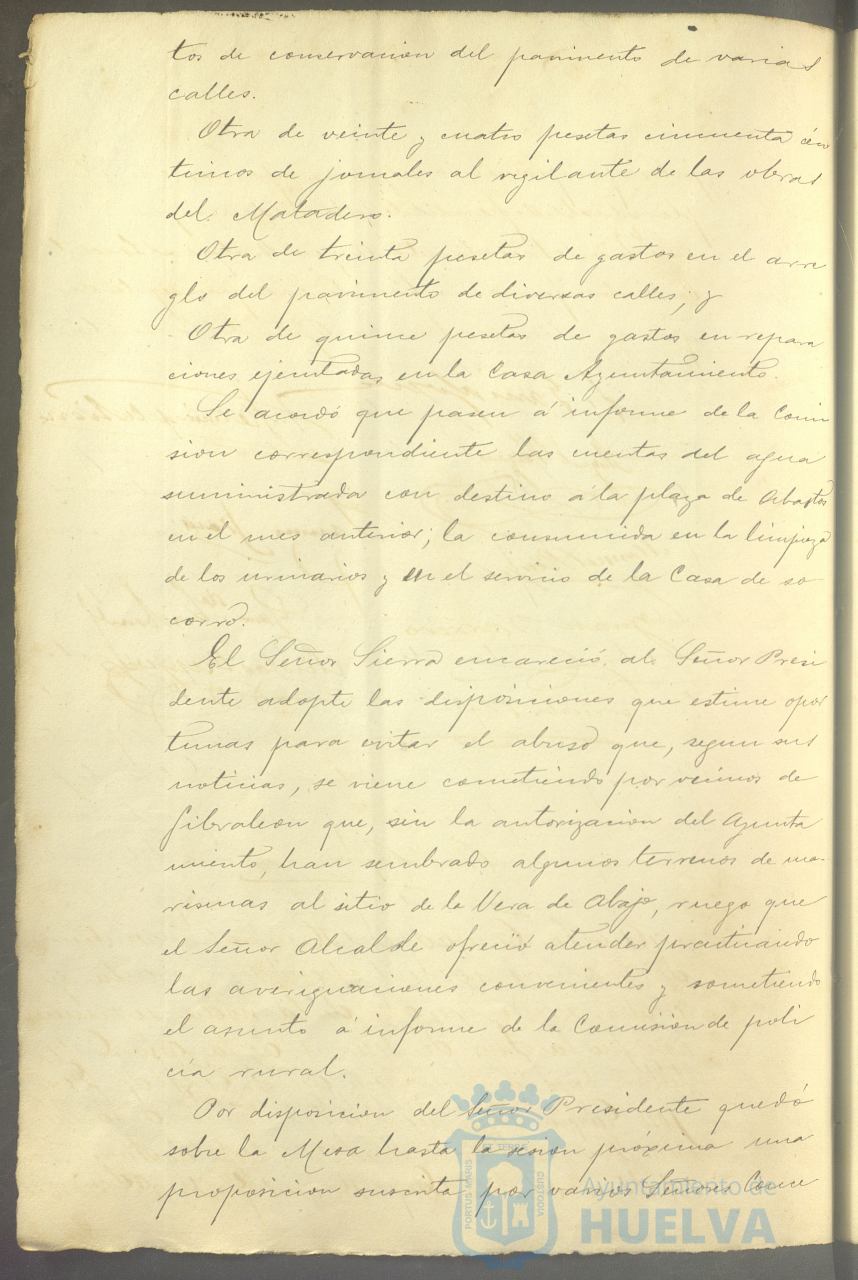 tos de conservacion del pavimento de varias
calles.
Otra de veinte y cuatro pesetas cincuenta cén
timos de jornales al vigilante de las obras
del Matadero.
Otra de treinta pesetas de gastos en el arre
glo del pavimento de diversas calles; y
Otra de quince pesetas de gastos en repara
ciones ejecutadas en la Casa Ayuntamiento.
Se acordó que pasen á informe de la Comi
sion correspondiente las cuentas del agua
suministrada con destino á la plaza de Abastos
en el mes anterior; la consumida en la limpieza
de los urinarios y en el servicio de la Casa de so
corro.
El Señor Sierra encareció al Señor Presi
dente adopte las disposiciones que estime opor
tunas para evitar el abuso que, segun sus
noticias, se viene cometiendo por vecinos de
Gibraleon que, sin la autorizacion del Ayunta
miento, han sembrado algunos terrenos de ma-
rismas al sitio de la Vera de Abajo, ruego que
el Señor Alcalde ofreció atender practicando
las averiguaciones convenientes y sometiendo
el asunto á informe de la Comision de poli
cía rural.
Por disposicion del Señor Presidente quedó
sobre la Mesa hasta la sesion próxima una
proposicion suscrita por varios Señores Conce
PORTUS MARIS ET TERRAE CUSTODIA
Ayuntamiento de
HUELVA